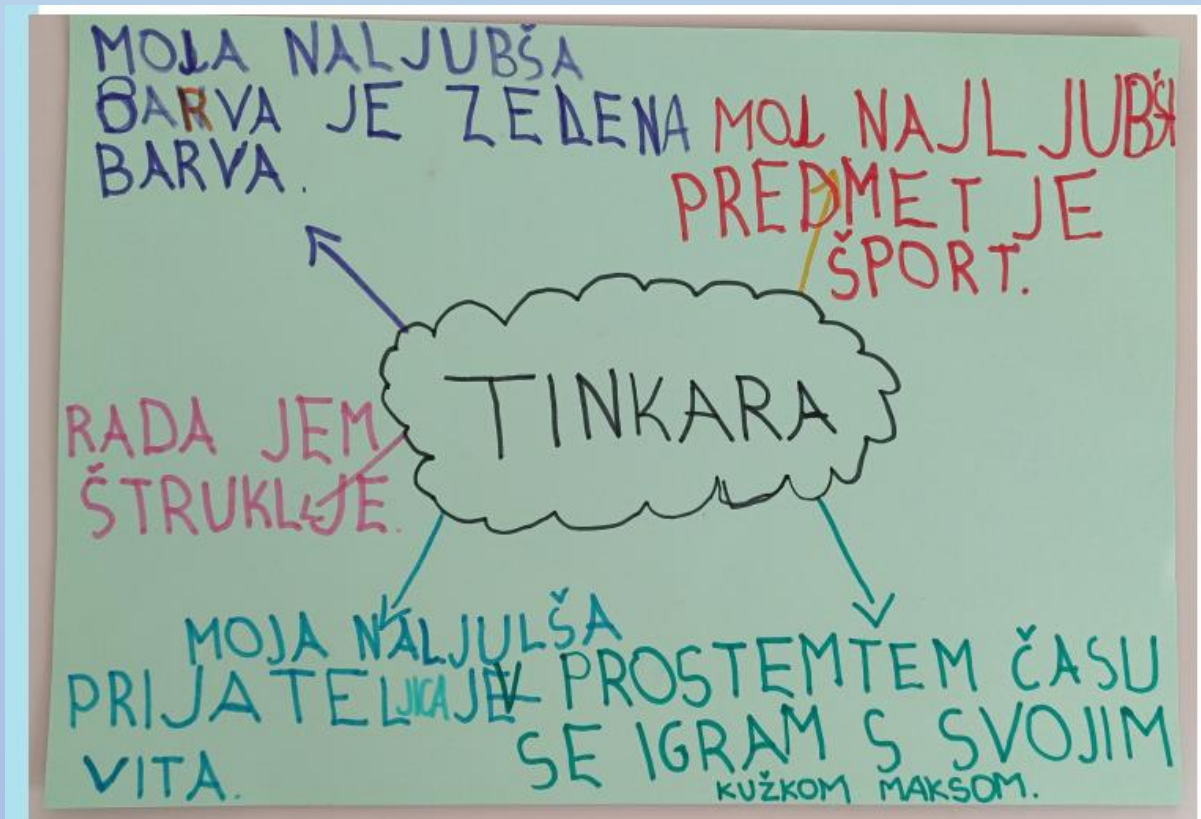 MOJA NALJUBŠA
BARVA JE ZELENA
BARVA.
MOJ NAJLJUBŠI
PREDMET JE
ŠPORT.
TINKARA
RADA JEM
ŠTRUKLJE.
MOJA NALJULŠA
PRIJATELJICA JE
VITA.
V PROSTEMTEM ČASU
SE IGRAM S SVOJIM
KUŽKOM MAKSOM.